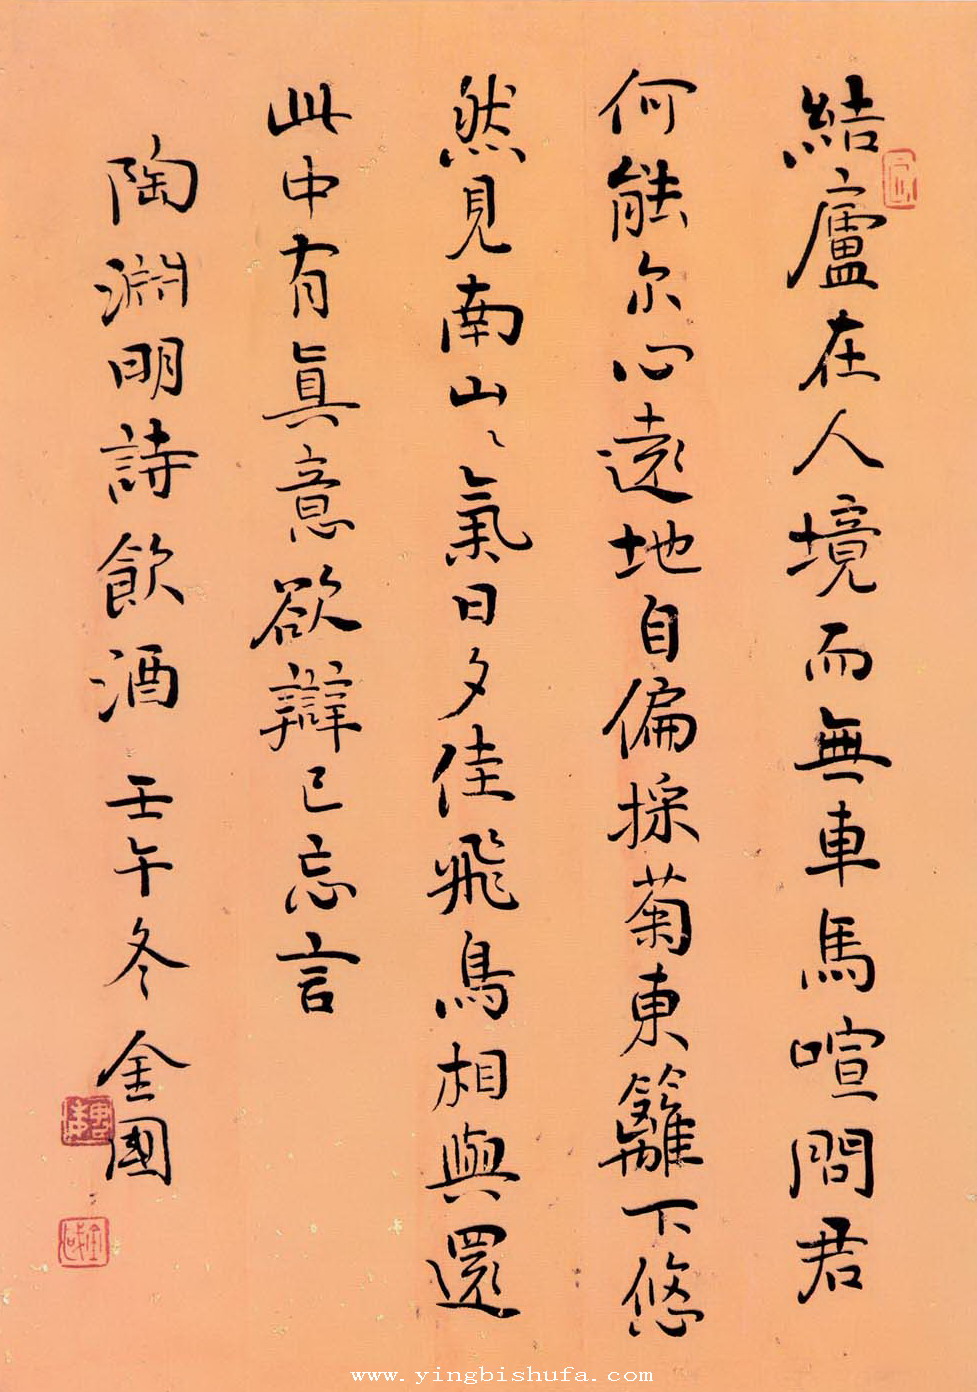 結廬在人境而無車馬喧問君
何能尔心遠地自偏採菊東籬下悠
然見南山山氣日夕佳飛鳥相與還
此中有真意欲辯已忘言
陶淵明詩飲酒壬午冬金國
www.yingbishufa.com